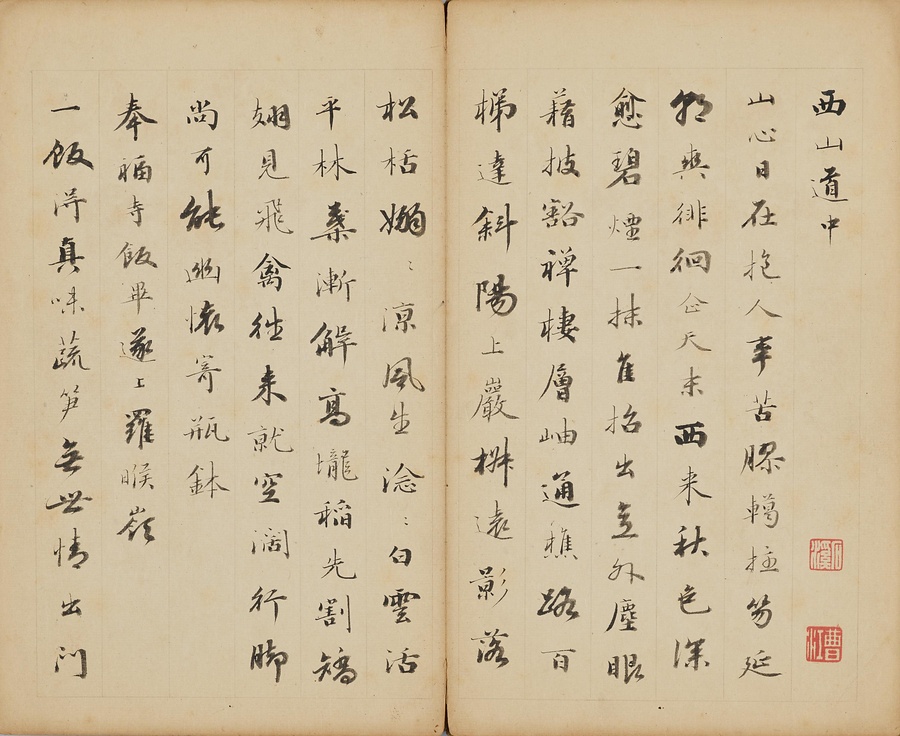 西山道中
山心日在抱人事苦膠轕拄笏延
朝爽徘徊企天末西来秋色深
愈碧煙一抹隹招出意外塵眼
藉披豁禪棲層岫通樵路百
梯達斜陽上巖椒遠影落
松栝嫋〻凉風生淰〻白雲活
平林葉漸解高壠稻先割矯
翅見飛禽往来就空濶行脚
尚可能幽懷寄瓶鉢
奉福寺飯畢遂上羅睺嶺
一飯得真味蔬笋無世情出门